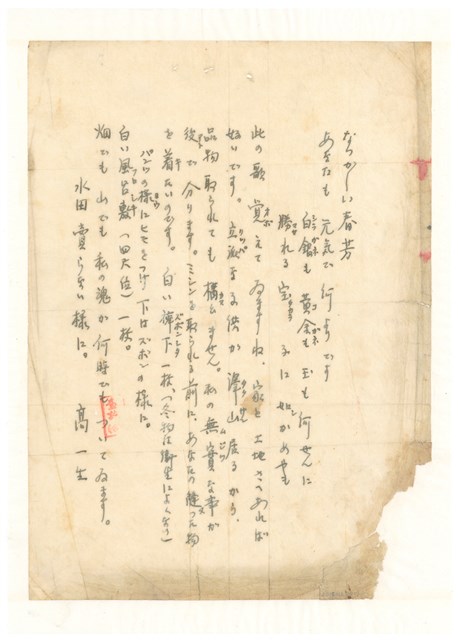 なつかしい春芳
あなたも元気で何よりです
白銀も黄金も玉も何せんに
勝れる宝 子に如かめやも
此の歌 覚えてゐますね、家と土地さへあれば
好いです。立派な子供が沢山居るから、
品物取られても構ひません。私の無実な事が
後で分ります。ミシンを取られる前に、あなたの縫った物
を着たいのです。白い褌下一枚、は衛生によくない)
パンツの様にヒモをつけ下はズボンの様に。
白い風呂敷(四尺位)一枚。
畑でも山でも私の魂が何時でもついてゐます。
水田売らない様に。
高一生